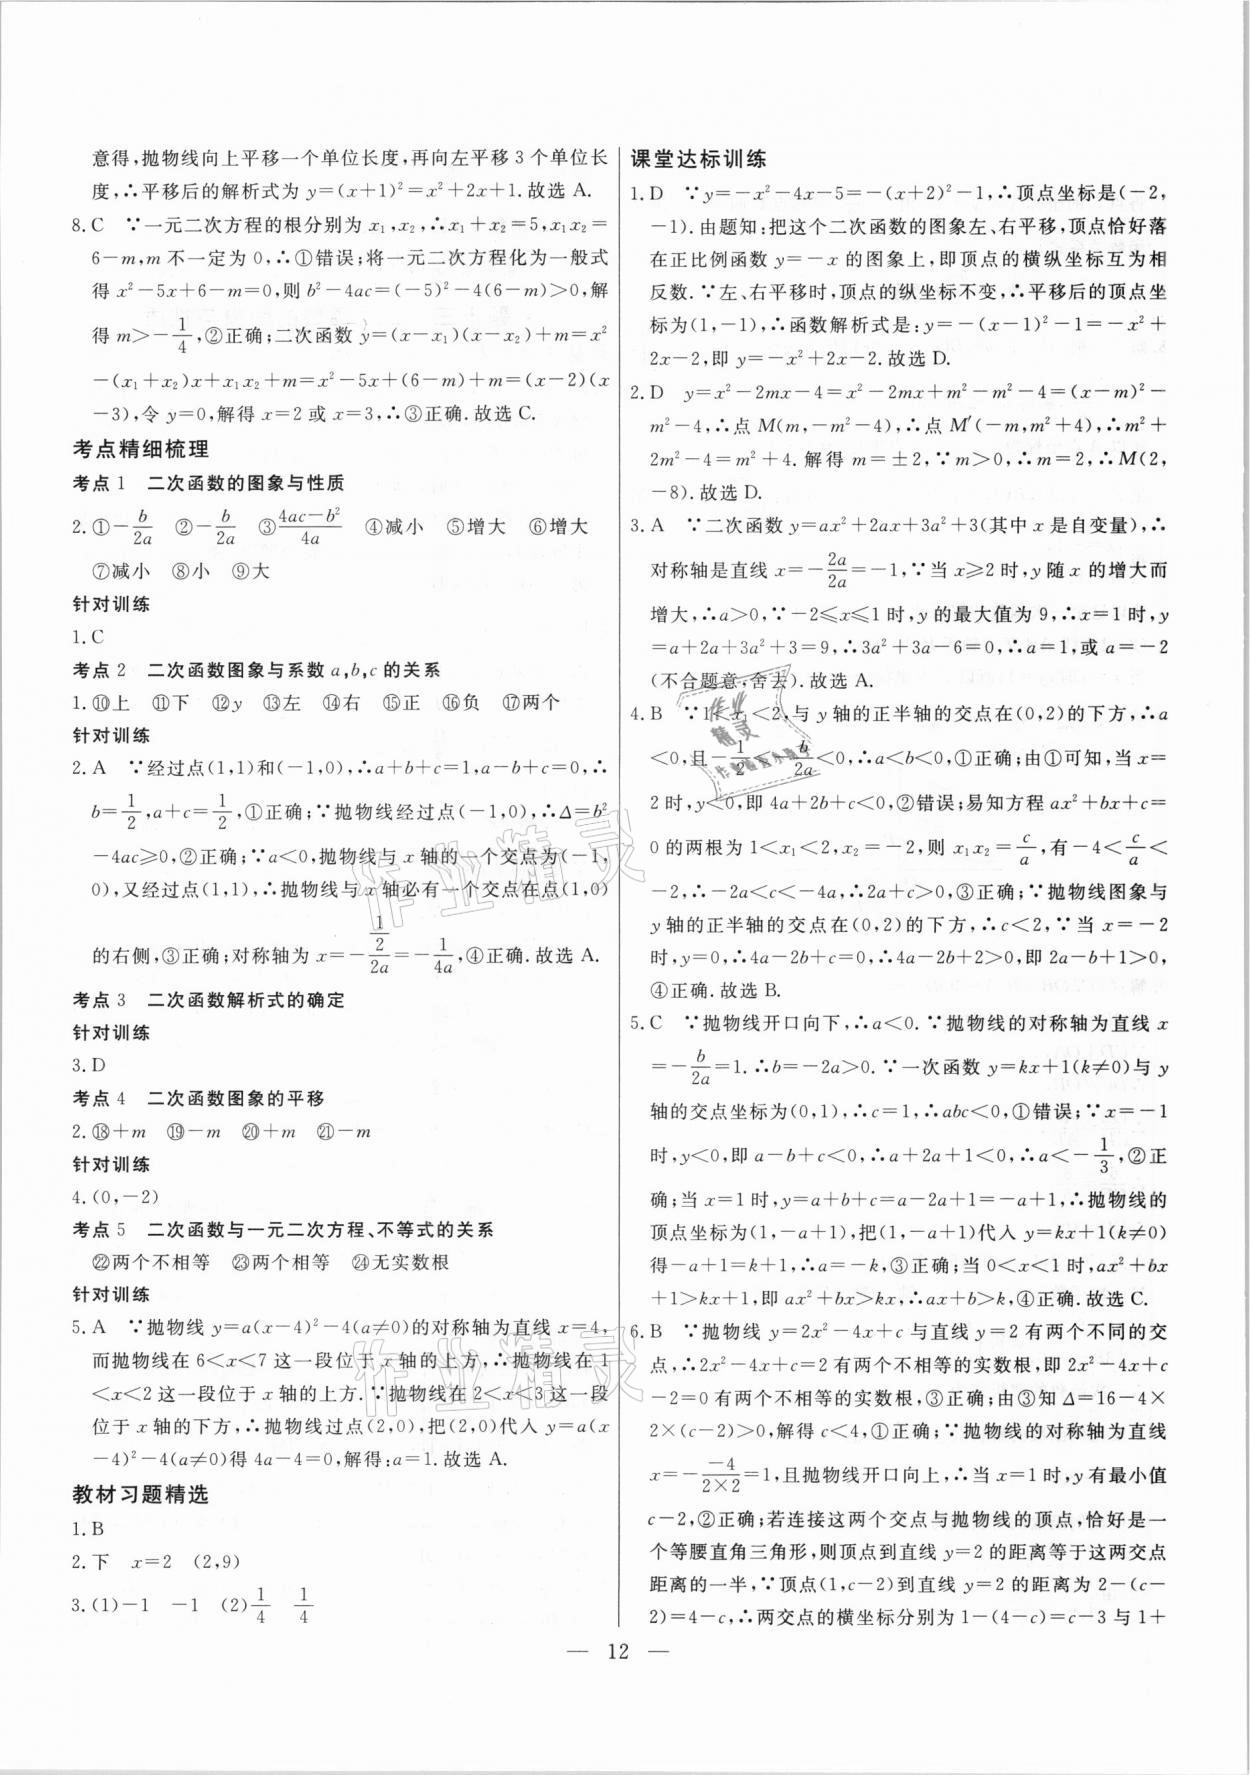 意得,抛物线向上平移一个单位长度,再向左平移 3 个单位长
度,∴平移后的解析式为 y=(x+1)²=x²+2x+1.故选 A.
8.C ∵一元二次方程的根分别为 x₁,x₂,∴x₁+x₂=5,x₁x₂=
6-m,m 不一定为 0,∴①错误;将一元二次方程化为一般式
得 x²-5x+6-m=0,则 b²-4ac=(-5)²-4(6-m)>0,解
得 m>-1/4,②正确;二次函数 y=(x-x₁)(x-x₂)+m=x²
-(x₁+x₂)x+x₁x₂+m=x²-5x+(6-m)+m=(x-2)(x
-3),令 y=0,解得 x=2 或 x=3,∴③正确.故选 C.
考点精细梳理
考点 1 二次函数的图象与性质
2.①-b/2a ②-b/2a ③(4ac-b²)/4a ④减小 ⑤增大 ⑥增大
⑦减小 ⑧小 ⑨大
针对训练
1.C
考点 2 二次函数图象与系数 a,b,c 的关系
1.⑩上 ⑪下 ⑫y ⑬左 ⑭右 ⑮正 ⑯负 ⑰两个
针对训练
2.A ∵经过点(1,1)和(-1,0),∴a+b+c=1,a-b+c=0,∴
b=1/2,a+c=1/2,①正确;∵抛物线经过点(-1,0),∴Δ=b²
-4ac≥0,②正确;∵a<0,抛物线与 x 轴的一个交点为(-1,
0),又经过点(1,1),∴抛物线与 x 轴必有一个交点在点(1,0)
的右侧,③正确;对称轴为 x=-(1/2)/2a=-1/4a,④正确.故选 A.
考点 3 二次函数解析式的确定
针对训练
3.D
考点 4 二次函数图象的平移
2.⑱+m ⑲-m ⑳+m ㉑-m
针对训练
4.(0,-2)
考点 5 二次函数与一元二次方程、不等式的关系
㉒两个不相等 ㉓两个相等 ㉔无实数根
针对训练
5.A ∵抛物线 y=a(x-4)²-4(a≠0)的对称轴为直线 x=4,
而抛物线在 6<x<7 这一段位于 x 轴的上方,∴抛物线在 1
<x<2 这一段位于 x 轴的上方.∵抛物线在 2<x<3 这一段
位于 x 轴的下方,∴抛物线过点(2,0),把(2,0)代入 y=a(x
-4)²-4(a≠0)得 4a-4=0,解得:a=1.故选 A.
教材习题精选
1.B
2.下 x=2 (2,9)
3.(1)-1 -1 (2)1/4 1/4
课堂达标训练
1.D ∵y=-x²-4x-5=-(x+2)²-1,∴顶点坐标是(-2,
-1).由题知:把这个二次函数的图象左、右平移,顶点恰好落
在正比例函数 y=-x 的图象上,即顶点的横纵坐标互为相
反数.∵左、右平移时,顶点的纵坐标不变,∴平移后的顶点坐
标为(1,-1),∴函数解析式是:y=-(x-1)²-1=-x²+
2x-2,即 y=-x²+2x-2.故选 D.
2.D y=x²-2mx-4=x²-2mx+m²-m²-4=(x-m)²-
m²-4,∴点 M(m,-m²-4),∴点 M′(-m,m²+4),∴m²+
2m²-4=m²+4.解得 m=±2,∵m>0,∴m=2,∴M(2,
-8).故选 D.
3.A ∵二次函数 y=ax²+2ax+3a²+3(其中 x 是自变量),∴
对称轴是直线 x=-2a/2a=-1,∵当 x≥2 时,y 随 x 的增大而
增大,∴a>0,∵-2≤x≤1 时,y 的最大值为 9,∴x=1 时,y
=a+2a+3a²+3=9,∴3a²+3a-6=0,∴a=1,或 a=-2
(不合题意,舍去).故选 A.
4.B ∵1<x₁<2,与 y 轴的正半轴的交点在(0,2)的下方,∴a
<0,且-1/2<-b/2a<0,∴a<b<0,①正确;由①可知,当 x=
2 时,y<0,即 4a+2b+c<0,②错误;易知方程 ax²+bx+c=
0 的两根为 1<x₁<2,x₂=-2,则 x₁x₂=c/a,有-4<c/a<
-2,∴-2a<c<-4a,∴2a+c>0,③正确;∵抛物线图象与
y 轴的正半轴的交点在(0,2)的下方,∴c<2,∵当 x=-2
时,y=0,∴4a-2b+c=0,∴4a-2b+2>0,即 2a-b+1>0,
④正确.故选 B.
5.C ∵抛物线开口向下,∴a<0.∵抛物线的对称轴为直线 x
=-b/2a=1.∴b=-2a>0.∵一次函数 y=kx+1(k≠0)与 y
轴的交点坐标为(0,1),∴c=1,∴abc<0,①错误;∵x=-1
时,y<0,即 a-b+c<0,∴a+2a+1<0,∴a<-1/3,②正
确;当 x=1 时,y=a+b+c=a-2a+1=-a+1,∴抛物线的
顶点坐标为(1,-a+1),把(1,-a+1)代入 y=kx+1(k≠0)
得-a+1=k+1,∴a=-k,③正确;当 0<x<1 时,ax²+bx
+1>kx+1,即 ax²+bx>kx,∴ax+b>k,④正确.故选 C.
6.B ∵抛物线 y=2x²-4x+c 与直线 y=2 有两个不同的交
点,∴2x²-4x+c=2 有两个不相等的实数根,即 2x²-4x+c
-2=0 有两个不相等的实数根,③正确;由③知 Δ=16-4×
2×(c-2)>0,解得 c<4,①正确;∵抛物线的对称轴为直线
x=--4/(2×2)=1,且抛物线开口向上,∴当 x=1 时,y 有最小值
c-2,②正确;若连接这两个交点与抛物线的顶点,恰好是一
个等腰直角三角形,则顶点到直线 y=2 的距离等于这两交点
距离的一半,∵顶点(1,c-2)到直线 y=2 的距离为 2-(c-
2)=4-c,∴两交点的横坐标分别为 1-(4-c)=c-3 与 1+
— 12 —
作业精灵
作业精灵
作业
精灵